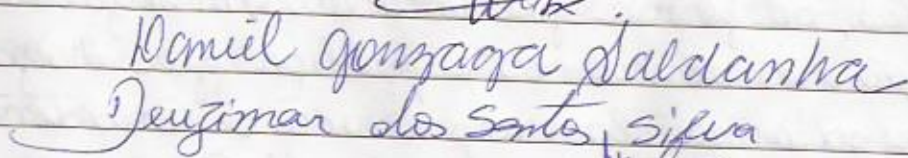 Daniel Gonzaga Saldanha
Deuzimar dos Santos Silva